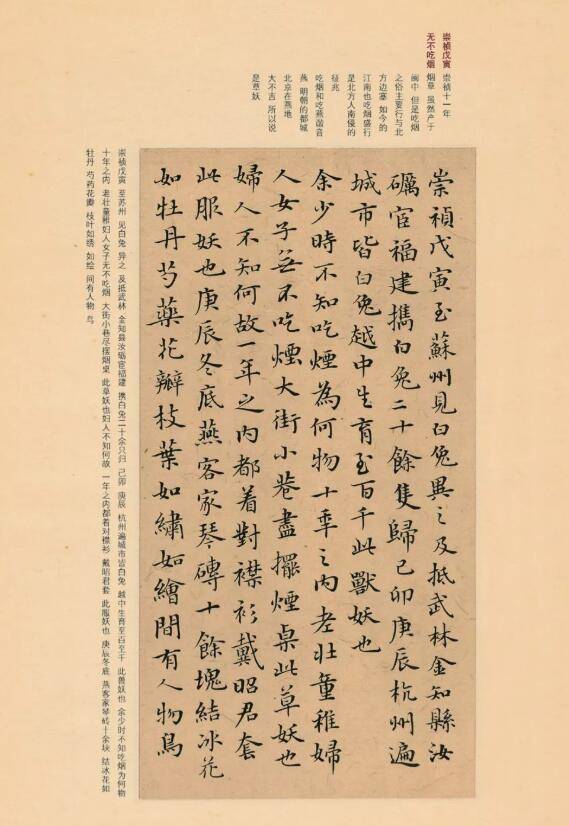 崇禎戊寅 崇禎十一年
无不吃烟 烟草 虽然产于
闽中 但是吃烟
之俗主要行与北
方边塞 如今的
江南也吃烟盛行
是北方人南侵的
征兆
吃烟和吃燕谐音
燕 明朝的都城
北京在燕地
大不吉 所以说
是草妖
崇禎戊寅至蘇州見白兔異之及抵武林金知縣汝
礪宦福建攜白兔二十餘隻歸己卯庚辰杭州遍
城市皆白兔越中生育至百千此獸妖也
余少時不知吃煙為何物十年之内老壯童稚婦
人女子無不吃煙大街小巷盡擺煙桌此草妖也
婦人不知何故一年之内都着對襟衫戴昭君套
此服妖也庚辰冬底燕客家琴磚十餘塊結冰花
如牡丹芍藥花瓣枝葉如繡如繪間有人物鳥
崇禎戊寅 至苏州 见白兔 异之 及抵武林 金知县汝砺宦福建 携白兔二十余只归 己卯 庚辰 杭州遍城市皆白兔 越中生育至百至千 此兽妖也 余少时不知吃烟为何物
十年之内 老壮童稚妇人女子无不吃烟 大街小巷尽摆烟桌 此草妖也妇人不知何故 一年之内都着对襟衫 戴昭君套 此服妖也 庚辰冬底 燕客家琴砖十余块 结冰花如
牡丹 芍药花瓣 枝叶如绣 如绘 间有人物 鸟